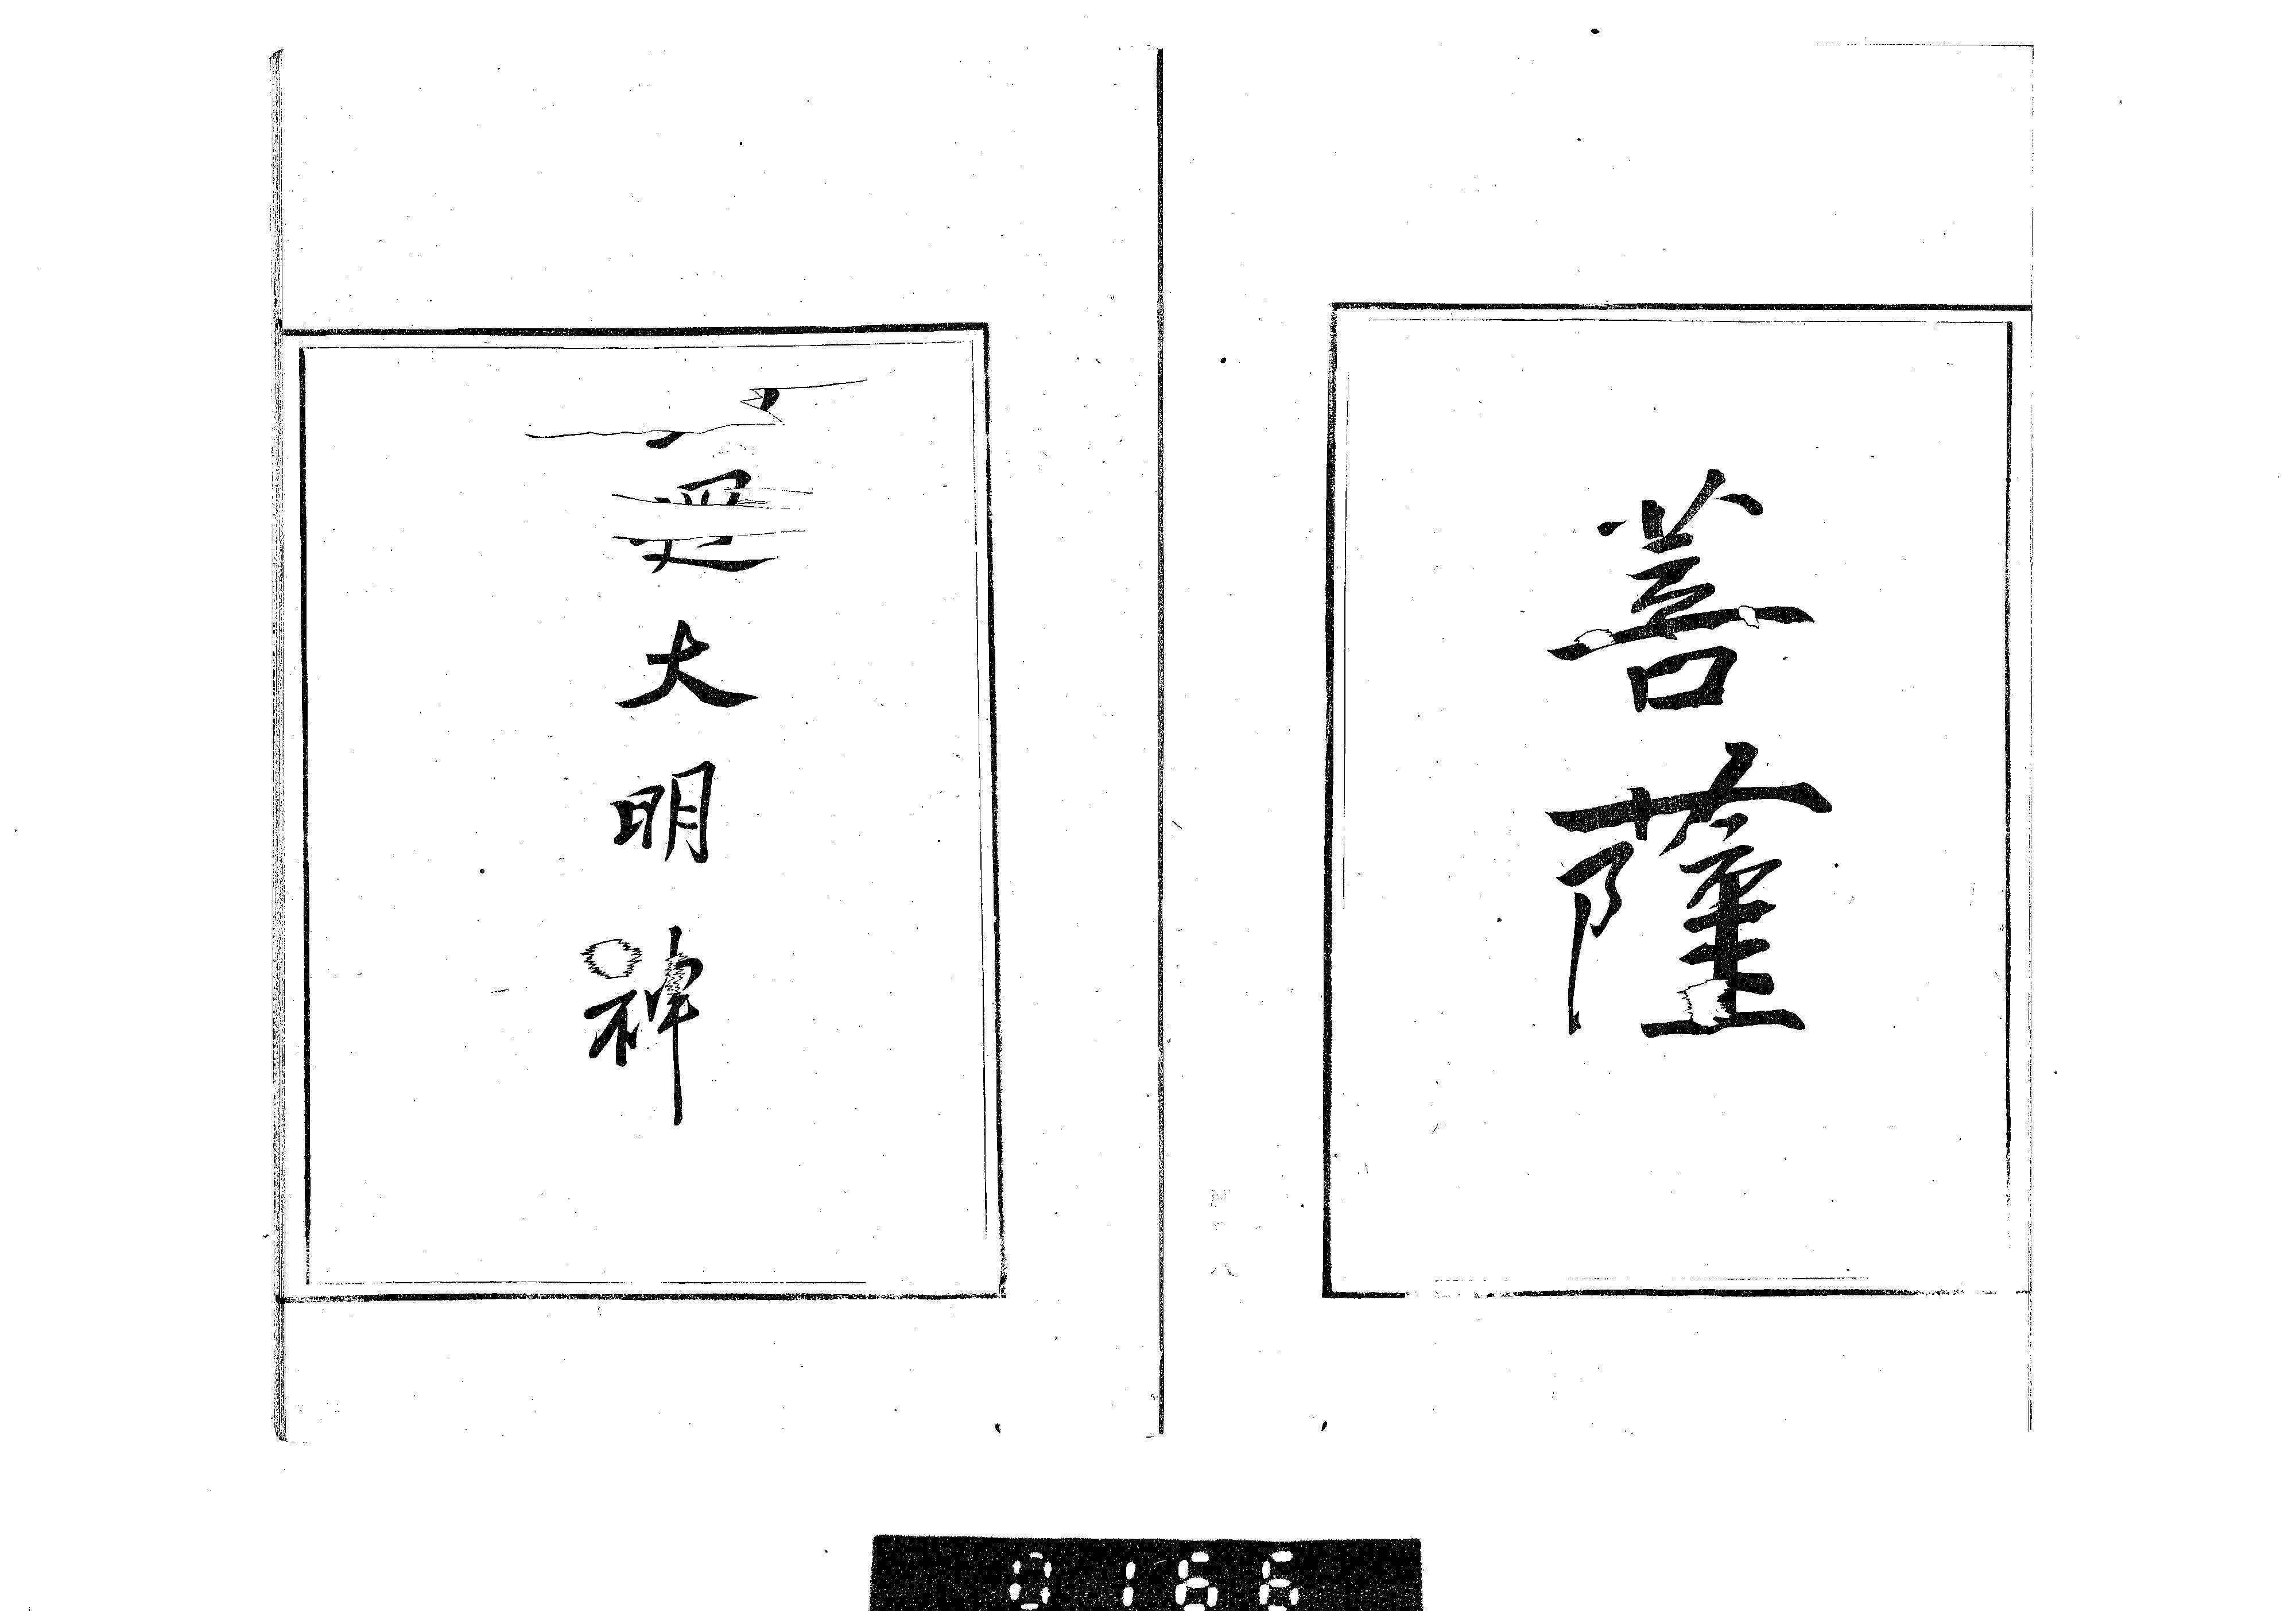 菩薩
大明神
0166